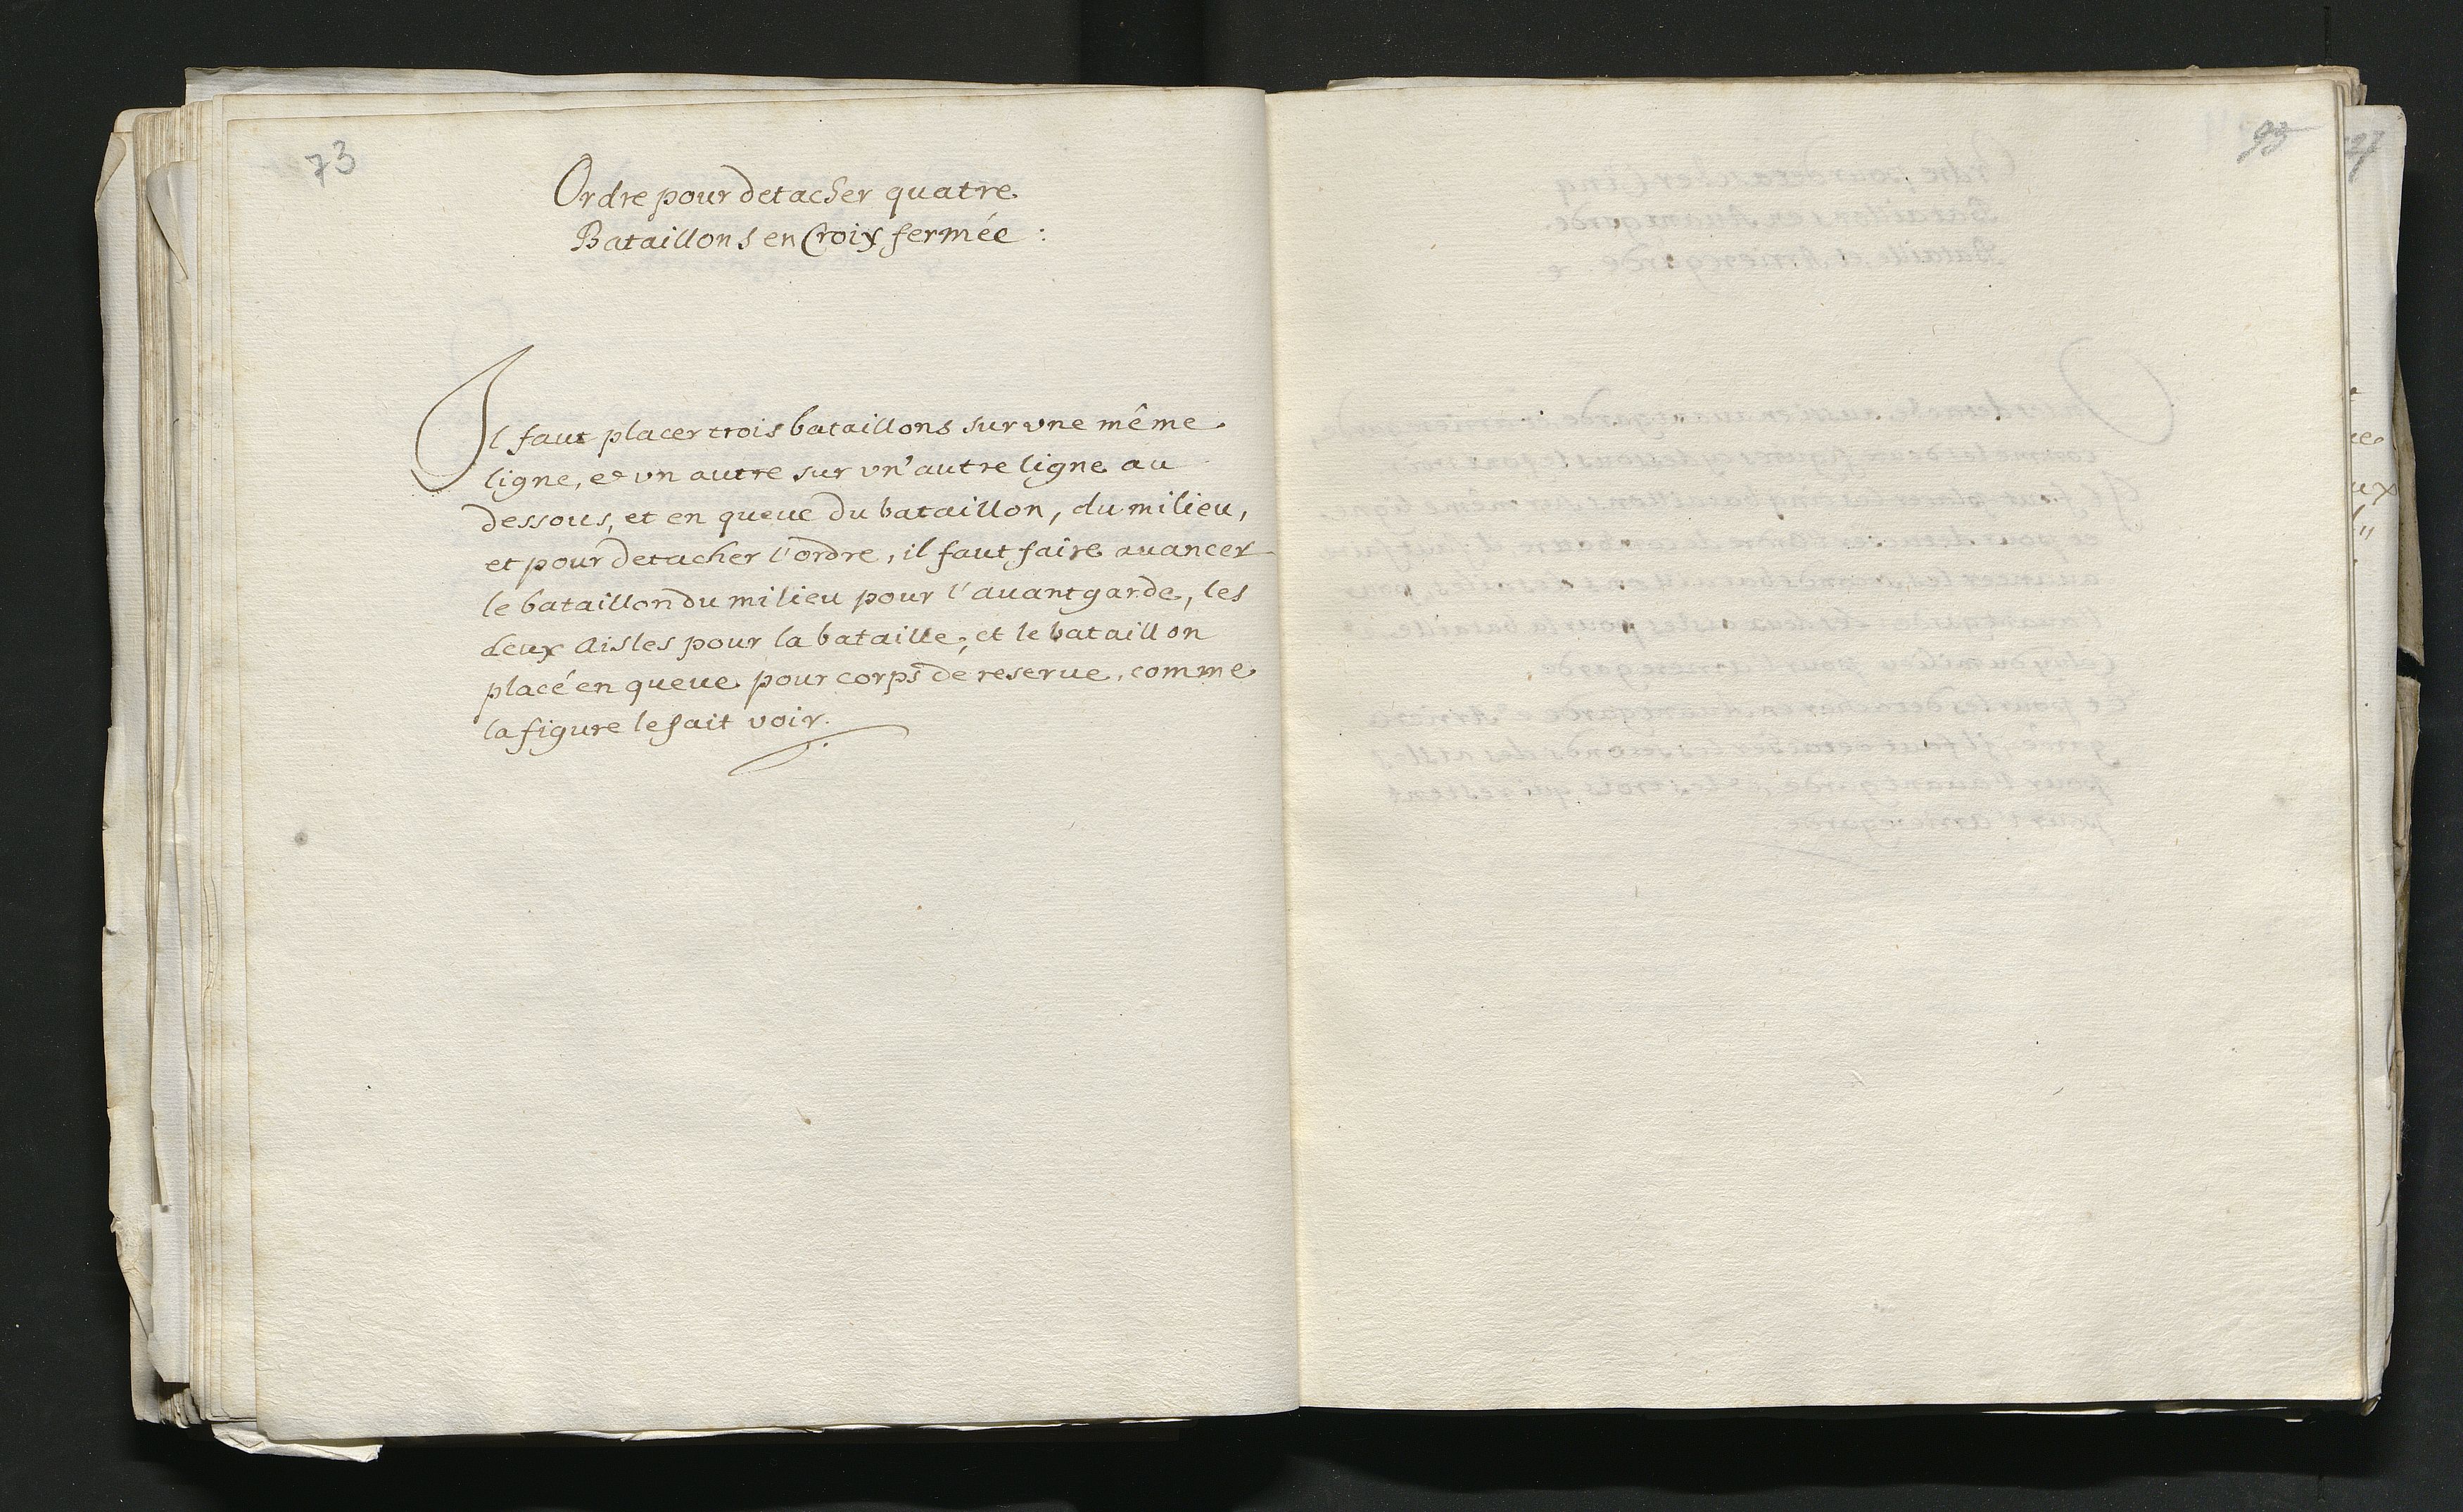 73
Ordre pour detacher quatre
Bataillons en Croix fermée :
Il faut placer trois bataillons sur vne même
ligne, et vn autre sur vn'autre ligne au
dessous, et en queue du bataillon, du milieu,
et pour detacher l'ordre, il faut faire auancer
le bataillon du milieu pour l'auantgarde, les
deux Aisles pour la bataille; et le bataillon
placé en queue pour corps de reserue, comme
la figure le fait voir.
93